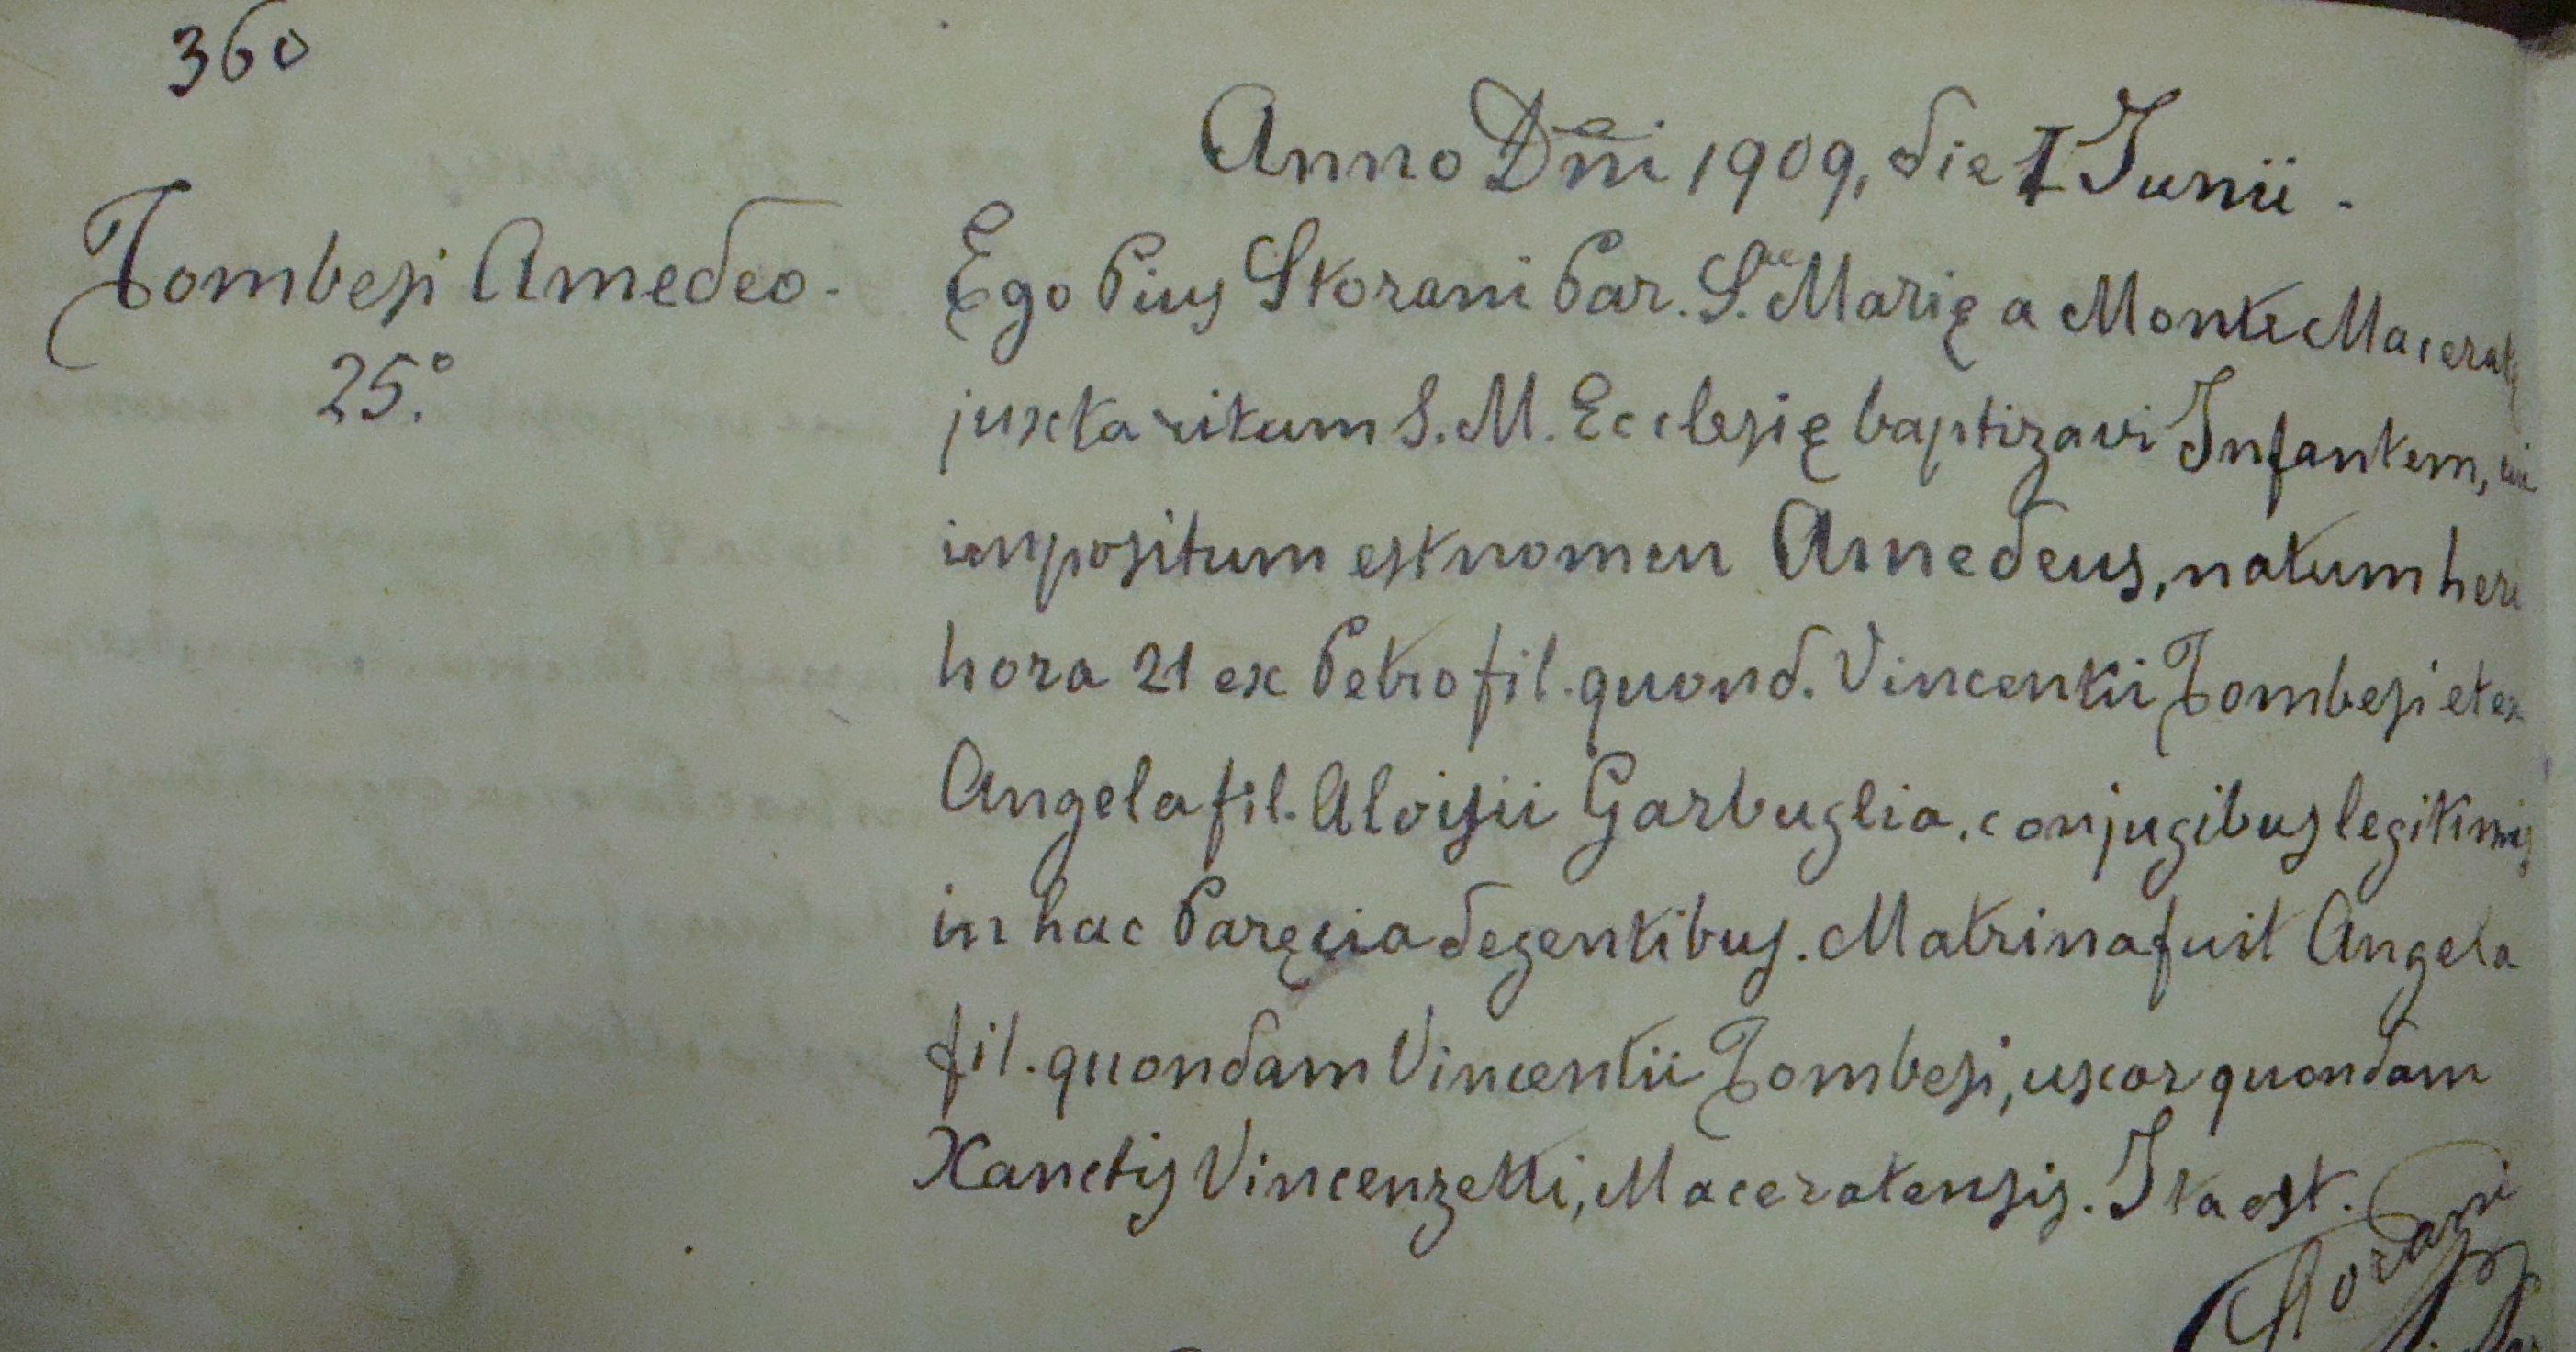 360
Anno Dñi 1909, die 1 Junii.
Tombesi Amedeo.
25.°
Ego Pius Storani Par. S.ae Marię a Monte Maceratę
juxta ritum S. M. Ecclesię baptizavi Infantem, cui
impositum est nomen Amedeus, natum heri
hora 21 ex Petro fil. quond. Vincentii Tombesi et ex
Angela fil. Aloisii Garbuglia, conjugibus legitimis
in hac Paręcia degentibus. Matrina fuit Angela
fil. quondam Vincentii Tombesi, uxor quondam
Xanctis Vincenzetti, Maceratensis. Ita est.
Storani